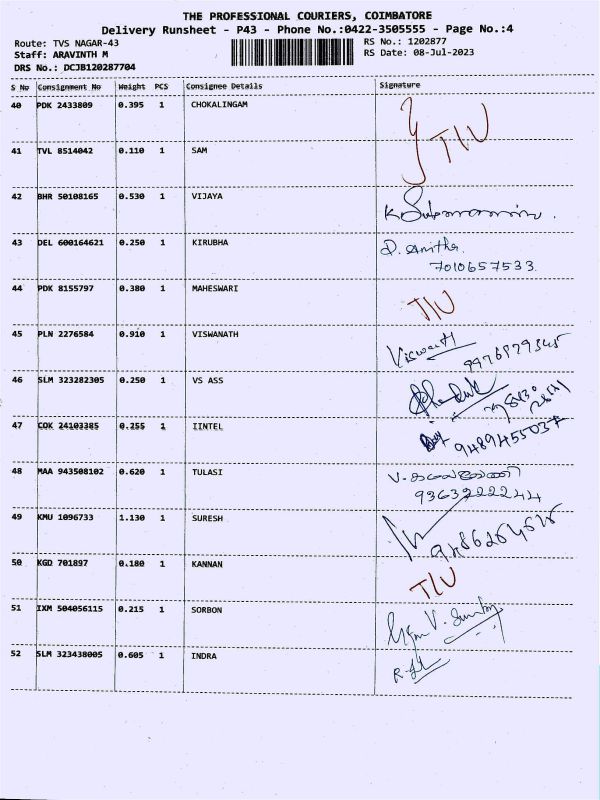 THE PROFESSIONAL COURIERS, COIMBATORE
Delivery Runsheet - P43 - Phone No.:0422-3505555 - Page No.:4
Route: TVS NAGAR-43 RS No.: 1202877
Staff: ARAVINTH M RS Date: 08-Jul-2023
DRS No.: DCJB120287704
S No Consignment No Weight PCS Consignee Details Signature
40 PDK 2433809 0.395 1 CHOKALINGAM
T/U
41 TVL 8514042 0.110 1 SAM
42 BHR 50108165 0.530 1 VIJAYA
43 DEL 600164621 0.250 1 KIRUBHA D. Anitha
7010657533
44 PDK 8155797 0.380 1 MAHESWARI T/U
45 PLN 2276584 0.910 1 VISWANATH Viswanath
9976979345
46 SLM 323282305 0.250 1 VS ASS
47 COK 24103385 0.255 1 IINTEL 9489455037
48 MAA 943508102 0.620 1 TULASI
9363222244
49 KMU 1096733 1.130 1 SURESH
50 KGD 701897 0.180 1 KANNAN T/U
51 IXM 504056115 0.215 1 SORBON
52 SLM 323438005 0.605 1 INDRA